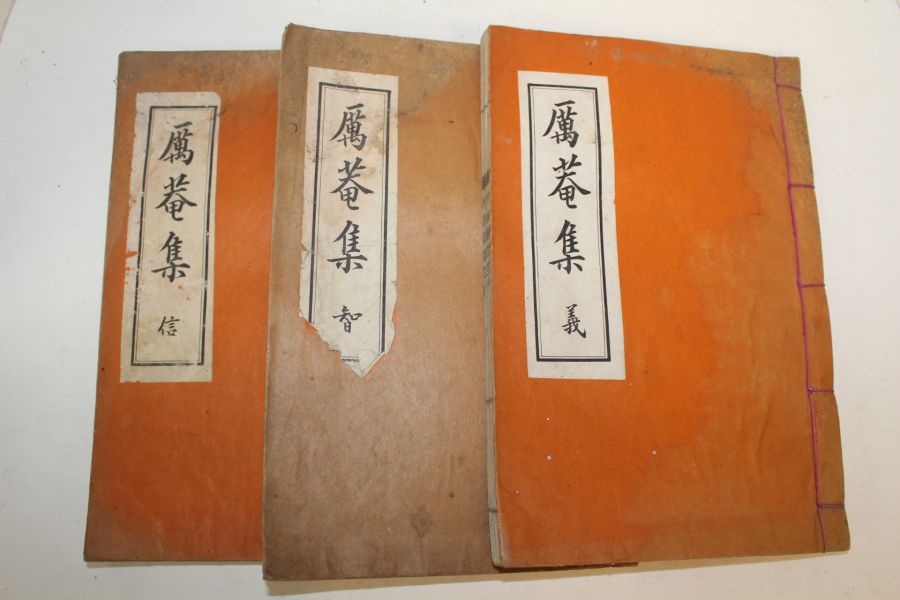 厲菴集 義
厲菴集 智
厲菴集 信